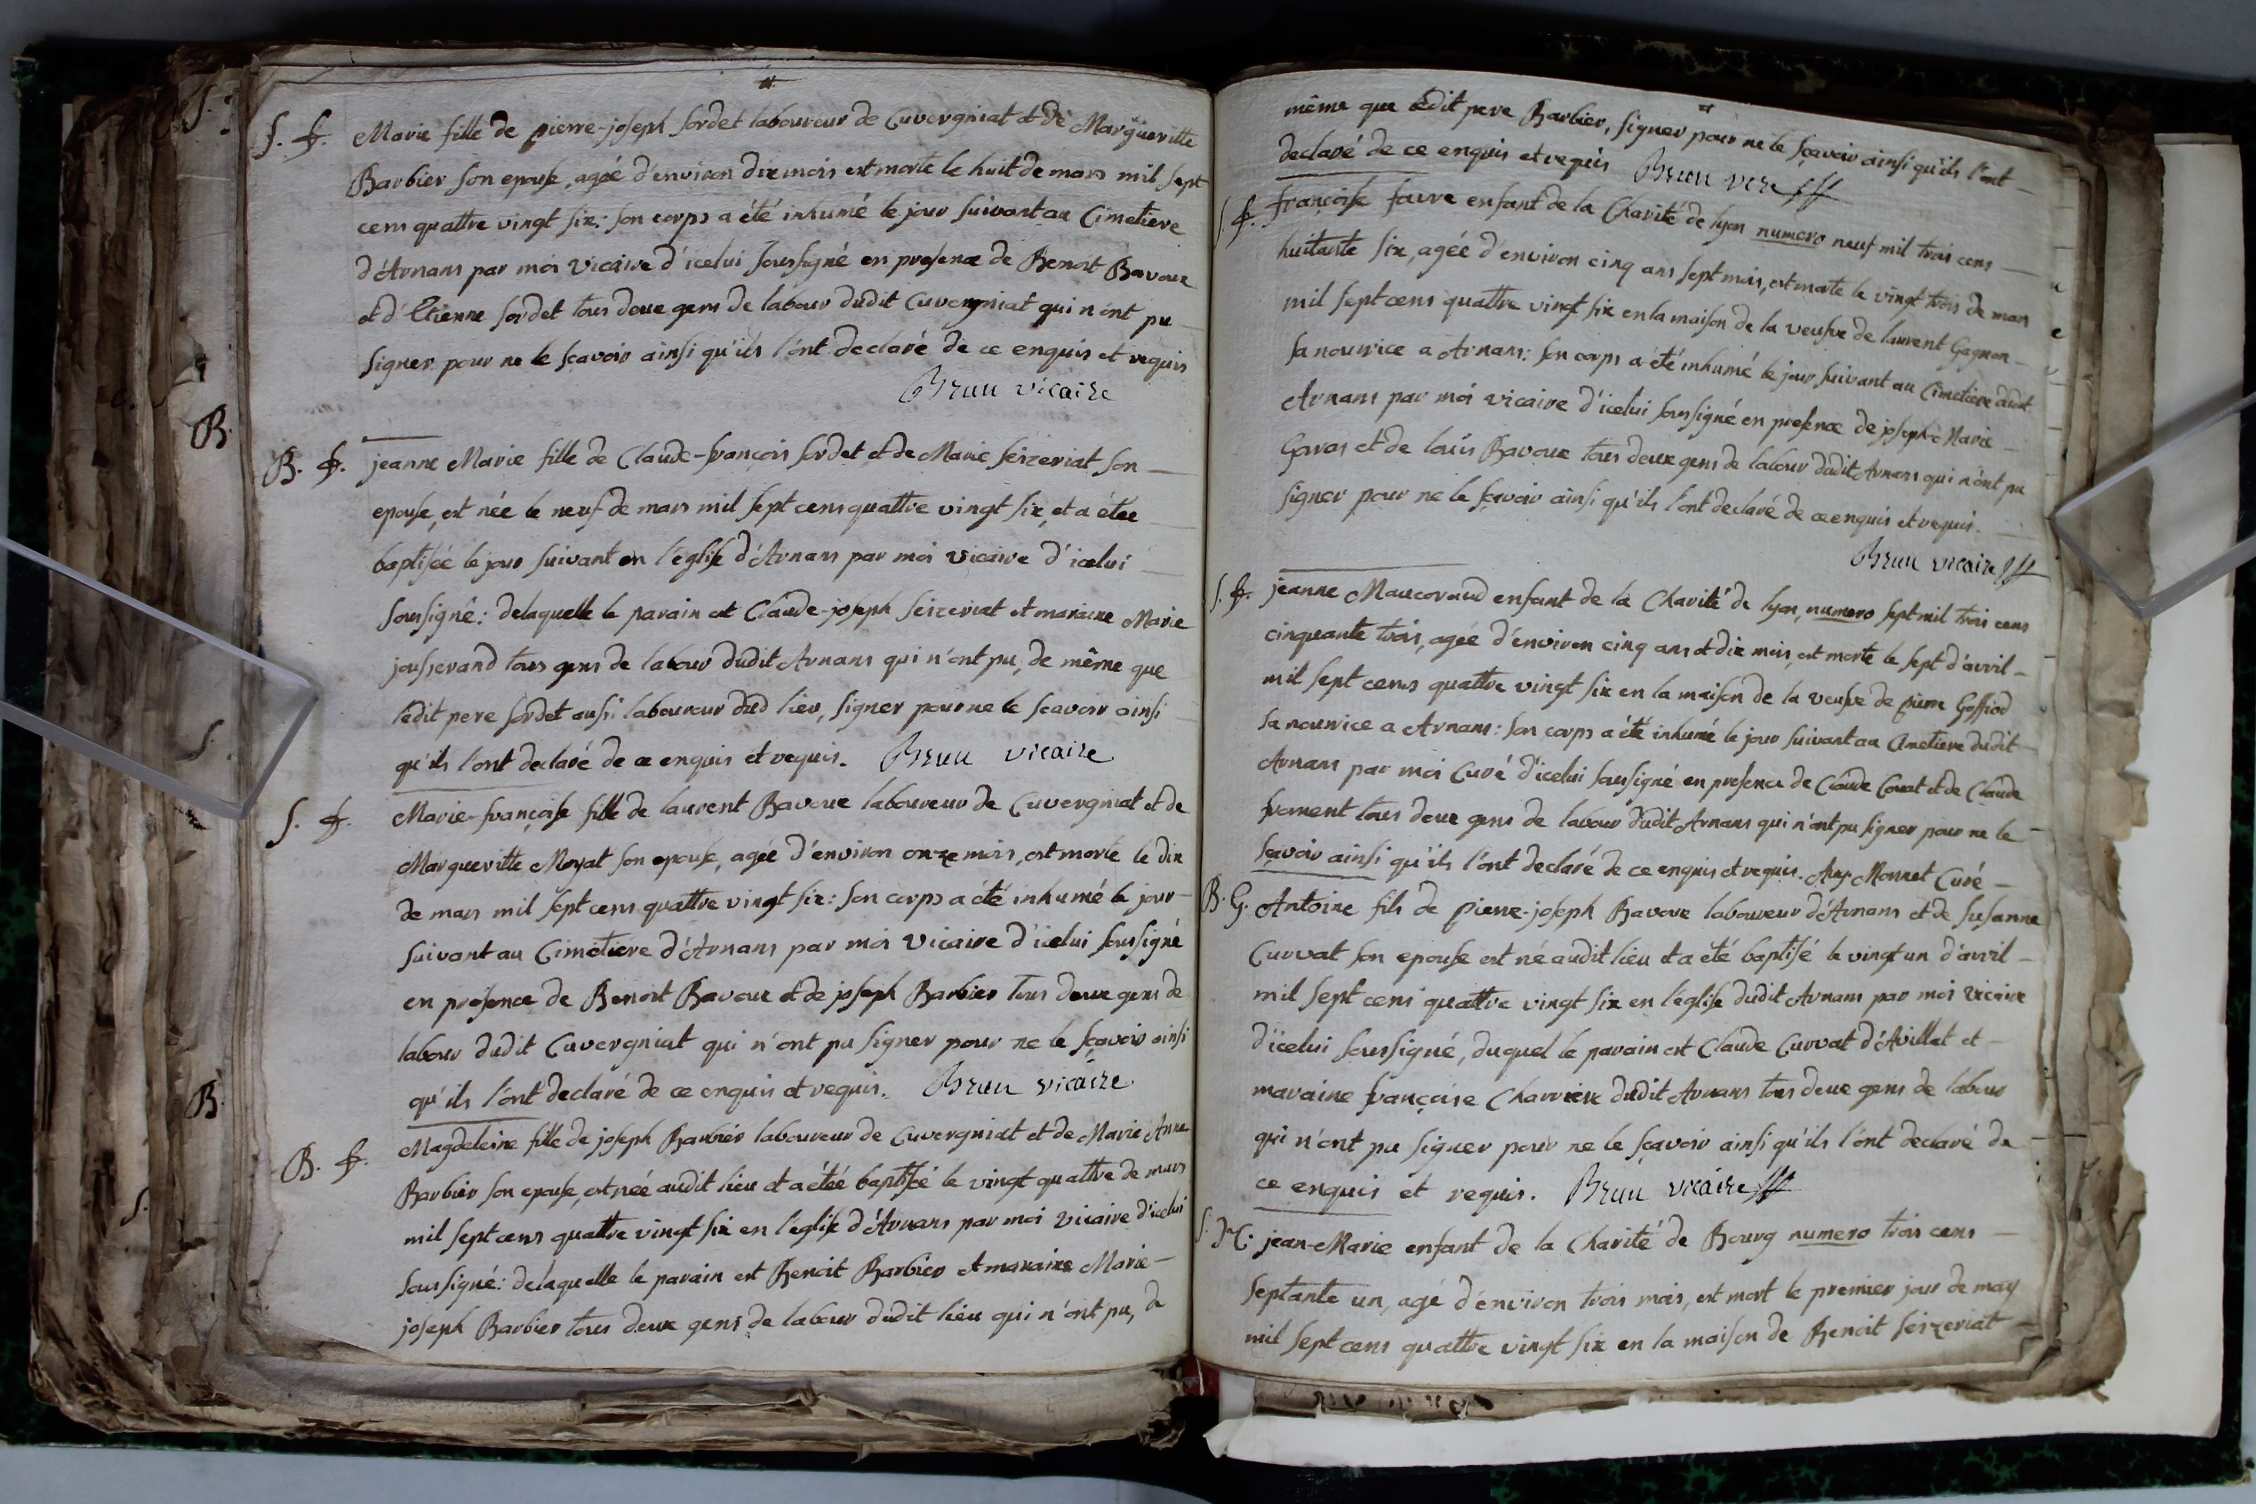 S. f. Marie fille de pierre-joseph sordet laboureur de Cuvergniat et de Margueritte
Barbier son epouse, agée d'environ dix mois est morte le huit de mars mil sept
cens quattre vingt six: son corps a été inhumé le jour suivant au Cimetiere
d'Arnans par moi vicaire d'icelui soussigné en presence de Benoit Bavoux
et d'Etienne sordet tous deux gens de labour dudit Cuvergniat qui n'ont pu
signer pour ne le sçavoir ainsi qu'ils l'ont declaré de ce enquis et requis
Brun vicaire
B. f. jeanne Marie fille de Claude-françois sordet et de Marie seizeriat son
epouse, est née le neuf de mars mil sept cens quattre vingt six, et a étée
baptisée le jour suivant en l'église d'Arnans par moi vicaire d'icelui
soussigné: de laquelle le parain est Claude-joseph seizeriat et maraine Marie
jousserand tous gens de labour dudit Arnans qui n'ont pu, de même que
ledit pere sordet aussi laboureur dud lieu, signer pour ne le sçavoir ainsi
qu'ils l'ont declaré de ce enquis et requis. Brun vicaire
S. f. Marie-françoise fille de laurent Bavoux laboureur de Cuvergniat et de
Margueritte Moyat son epouse, agée d'environ onze mois, est morte le dix
de mars mil sept cens quattre vingt six: son corps a été inhumé le jour
suivant au Cimetiere d'Arnans par moi vicaire d'icelui soussigné
en présence de Benoit Bavoux et de joseph Barbier tous deux gens de
labour dudit Cuvergniat qui n'ont pu signer pour ne le sçavoir ainsi
qu'ils l'ont declaré de ce enquis et requis. Brun vicaire
B. f. Magdeleine fille de joseph Barbier laboureur de Cuvergniat et de Marie Anne
Barbier son epouse, est née audit lieu et a étée baptisée le vingt quattre de mars
mil sept cens quattre vingt six en l'église d'Arnans par moi vicaire d'icelui
soussigné: de laquelle le parain est Benoit Barbier et maraine Marie
joseph Barbier tous deux gens de labour dudit lieu qui n'ont pu, de
même que ledit pere Barbier, signer pour ne le sçavoir ainsi qu'ils l'ont
declaré de ce enquis et requis Brun vere
S. f. françoise faivre enfant de la Charité de lyon numero neuf mil trois cens
huitante six, agée d'environ cinq ans sept mois, est morte le vingt trois de mars
mil sept cens quattre vingt six en la maison de la veufve de laurent Gagnon
sa nourrice a Arnans: son corps a été inhumé le jour suivant au Cimetiere dudit
Arnans par moi vicaire d'icelui soussigné en presence de joseph-Marie
Gavas et de louis Bavoux tous deux gens de labour dudit Arnans qui n'ont pu
signer pour ne le sçavoir ainsi qu'ils l'ont declaré de ce enquis et requis.
Brun vicaire
S. f. jeanne Maucoraud enfant de la Charité de lyon, numero sept mil trois cens
cinquante trois, agée d'environ cinq ans et dix mois, est morte le sept d'avril
mil sept cens quattre vingt six en la maison de la veufve de pierre Goffiod
sa nourrice a Arnans: son corps a été inhumé le jour suivant au Cimetiere dudit
Arnans par moi Curé d'icelui soussigné en presence de Claude Covat et de Claude
froment tous deux gens de labour dudit Arnans qui n'ont pu signer pour ne le
sçavoir ainsi qu'ils l'ont declaré de ce enquis et requis. Monnet Curé
B. G. Antoine fils de pierre-joseph Bavoux laboureur d'Arnans et de susanne
Curvat son epouse est né audit lieu et a été baptisé le vingt un d'avril
mil sept cens quattre vingt six en l'église dudit Arnans par moi vicaire
d'icelui soussigné, duquel le parain est Claude Curvat d'Avillat et
maraine françoise Charriere dudit Arnans tous deux gens de labour
qui n'ont pu signer pour ne le sçavoir ainsi qu'ils l'ont declaré de
ce enquis et requis. Brun vicaire
S. jean-Marie enfant de la Charité de Bourg numero trois cens
septante un, agé d'environ trois mois, est mort le premier jour de may
mil sept cens quattre vingt six en la maison de Benoit seizeriat